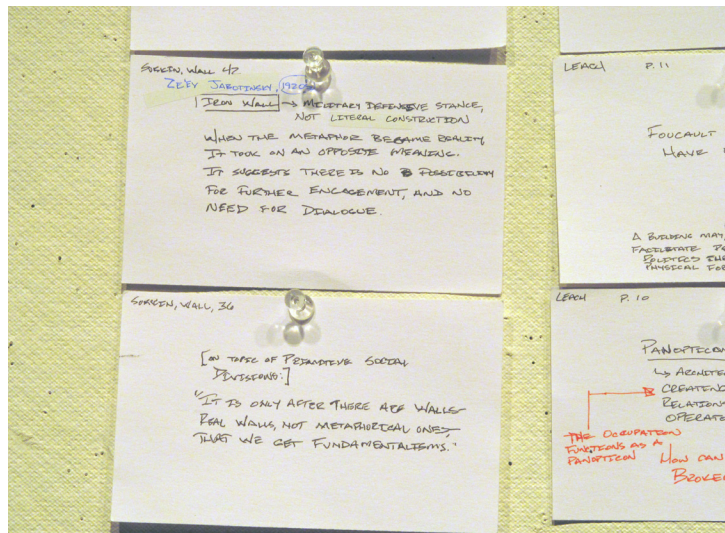 SORKIN, WALL 42
ZE'EV JABOTINSKY, 1920s
IRON WALL → MILITARY DEFENSIVE STANCE,
NOT LITERAL CONSTRUCTION
WHEN THE METAPHOR BECAME REALITY
IT TOOK ON AN OPPOSITE MEANING.
IT SUGGESTS THERE IS NO POSSIBILITY
FOR FURTHER ENGAGEMENT, AND NO
NEED FOR DIALOGUE.
SORKIN, WALL, 36
[ON TOPIC OF PRIMITIVE SOCIAL
DIVISIONS:]
"IT IS ONLY AFTER THERE ARE WALLS
REAL WALLS, NOT METAPHORICAL ONES,
THAT WE GET FUNDAMENTALISMS."
LEACH P. 11
FOUCAULT
HAVE
A BUILDING MAY
FACILITATE
POLITICS
PHYSICAL
LEACH P. 10
PANOPTICON
↳
CREATING
THE OCCUPATION
FUNCTIONS AS A
PANOPTICON
HOW CAN